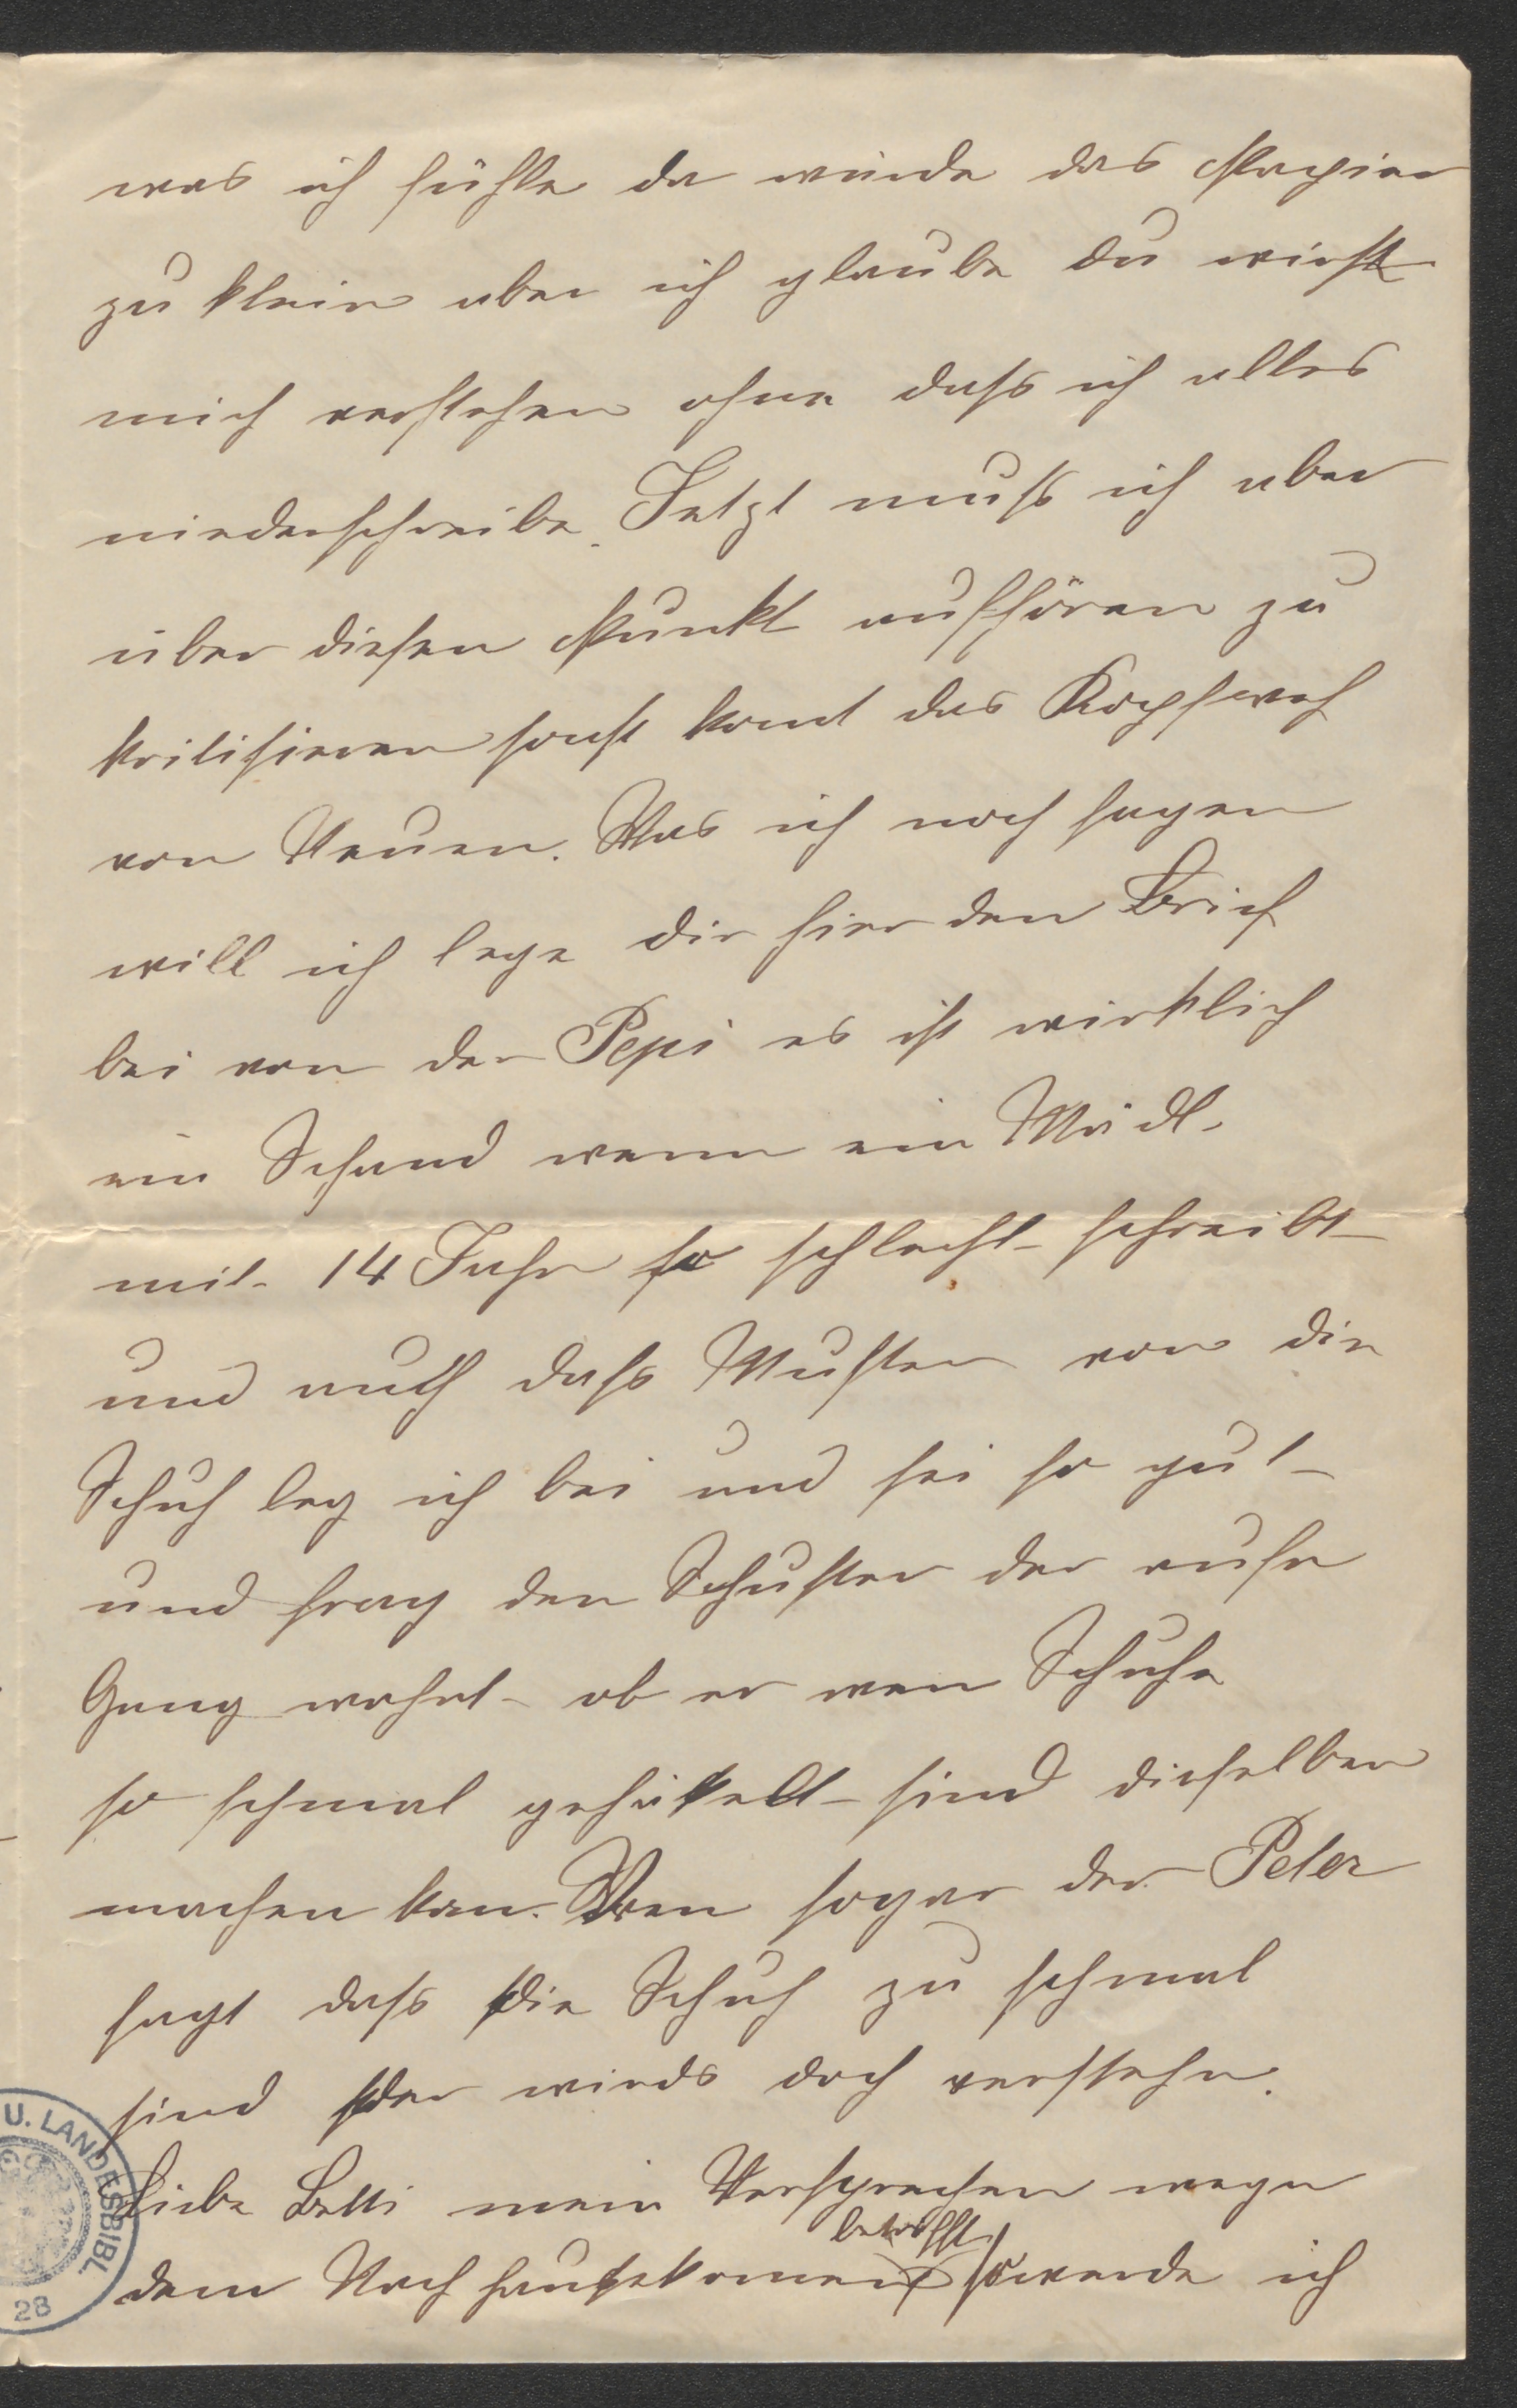 was ich fühle da würde das Papier
zu klein aber ich glaube du wirst
mich verstehen ohne dass ich alles
niederschreibe. Jetzt muss ich aber
über diesen Punkt aufhören zu
kritisieren sonst komt das Kopfweh
von Neuen. Was ich noch sagen
will ich lege dir hier den Brief
bei von der Pepi es ist wirklich
ein Schand wenn ein Mädl.
mit 14 Jahr so schlecht schreibt
und auch dass Muster von die
Schuh leg ich bei und sei so gut
und frag den Schuster der aufn
Gang wohnt ob er wen Schuhe
so schmal gehäkelt sind dieselben
machen kan. Wen sogar der Peter
sagt dass die Schuh zu schmal
sind der wirds doch verstehn.
Liebe Betti mein Versprechen wegen
betrifft
dem Nach hausekomen so werde ich
U. LANDESBIBL.
28